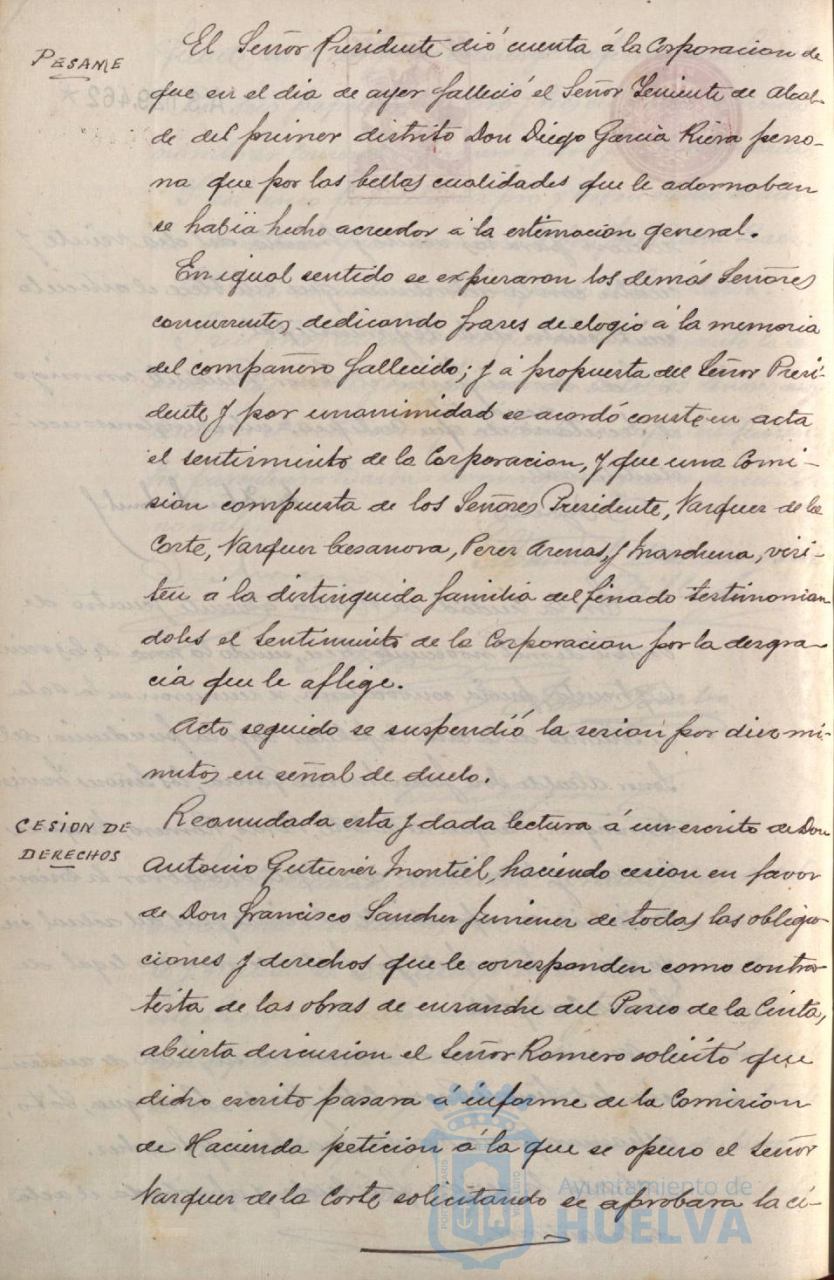 PESAME
El Señor Presidente dió cuenta á la Corporacion de
que en el dia de ayer falleció el Señor Teniente de Alcal-
de del primer distrito Don Diego Garcia Riera perso-
na que por las bellas cualidades que le adornaban
se habia hecho acreedor á la estimacion general.
En igual sentido se expresaron los demás Señores
concurrentes, dedicando frases de elogio á la memoria
del compañero fallecido; y á propuesta del Señor Presi-
dente y por unanimidad se acordó conste en acta
el sentimiento de la Corporacion, y que una Comi-
sion compuesta de los Señores Presidente, Vazquez de la
Corte, Vazquez Casanova, Perez Arenas, y Marchena, visi-
ten á la distinguida familia del finado testimonian-
doles el sentimiento de la Corporacion por la desgra-
cia que le aflige.
Acto seguido se suspendió la sesion por diez mi-
nutos en señal de duelo.
CESION DE
DERECHOS
Reanudada esta y dada lectura á un escrito de Don
Antonio Gutierrez Montiel, haciendo cesion en favor
de Don Francisco Sanchez Jimenez de todas las obliga-
ciones y derechos que le corresponden como contra-
tista de las obras de ensanche del Paseo de la Cinta,
abierta discusion el Señor Romero solicitó que
dicho escrito pasara á informe de la Comision
de Hacienda peticion á la que se opuso el Señor
Vazquez de la Corte solicitando se aprobara la ce-
Ayuntamiento de
HUELVA